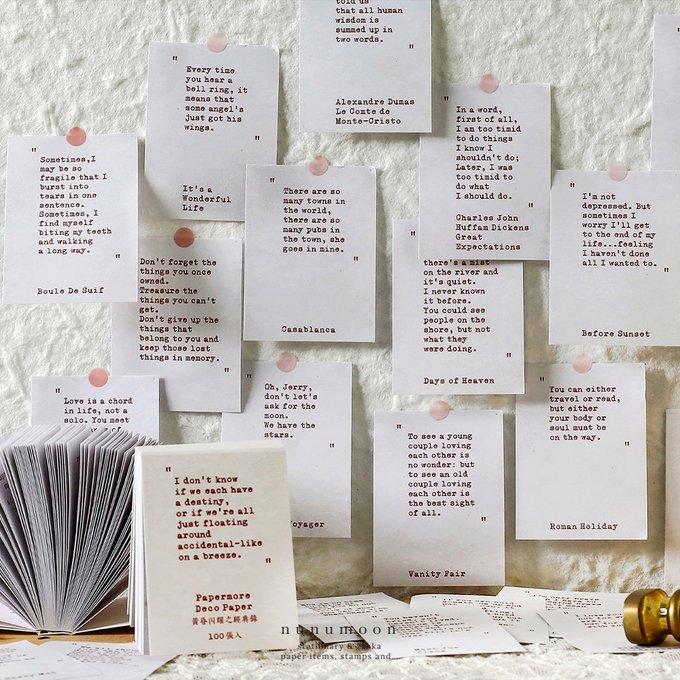 told us
that all human
wisdom is
summed up in
two words.
"
Alexandre Dumas
Le Comte de
Monte-Cristo
"
Every time
you hear a
bell ring, it
means that
some angel's
just got his
wings.
"
It's a
Wonderful
Life
"
In a word,
first of all,
I am too timid
to do things
I know I
shouldn't do;
Later, I was
too timid to
do what
I should do.
"
Charles John
Huffam Dickens
Great
Expectations
"
Sometimes,I
may be so
fragile that I
burst into
tears in one
sentence.
Sometimes, I
find myself
biting my teeth
and walking
a long way.
"
Boule De Suif
"
There are so
many towns in
the world,
there are so
many pubs in
the town, she
goes in mine.
"
Casablanca
"
I'm not
depressed. But
sometimes I
worry I'll get
to the end of my
life...feeling
I haven't done
all I wanted to.
"
Before Sunset
Don't forget the
things you once
owned.
Treasure the
things you can't
get.
Don't give up the
things that
belong to you and
keep those lost
things in memory.
"
"
there's a mist
on the river and
it's quiet.
I never known
it before.
You could see
people on the
shore, but not
what they
were doing.
"
Days of Heaven
"
Love is a chord
in life, not a
solo. You meet
"
Oh, Jerry,
don't let's
ask for the
moon.
We have the
stars.
"
Voyager
"
You can either
travel or read,
but either
your body or
soul must be
on the way.
"
Roman Holiday
"
To see a young
couple loving
each other is
no wonder; but
to see an old
couple loving
each other is
the best sight
of all.
"
Vanity Fair
"
I don't know
if we each have
a destiny,
or if we're all
just floating
around
accidental-like
on a breeze.
"
Papermore
Deco Paper
黃昏閃耀之經典錄
100張入
nunumoon
stationary & zakka
paper items, stamps and